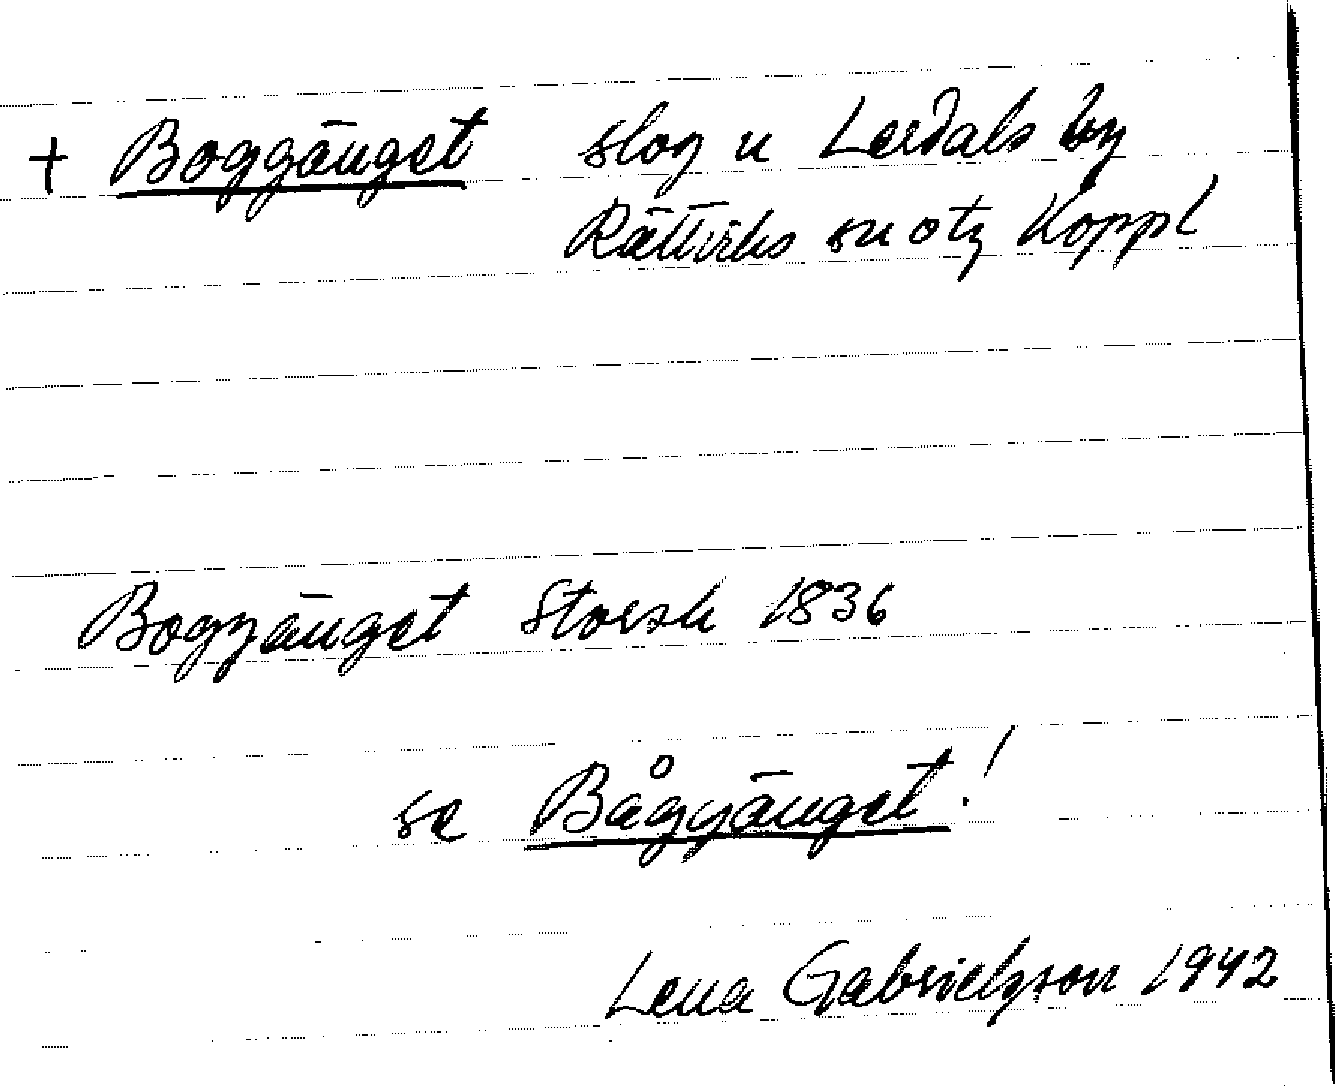 + Boggänget slog u Lerdals by
Rättviks sn otg Koppl
Boggänget Storsk 1836
se Båggänget!
Lena Gabrielsson 1942